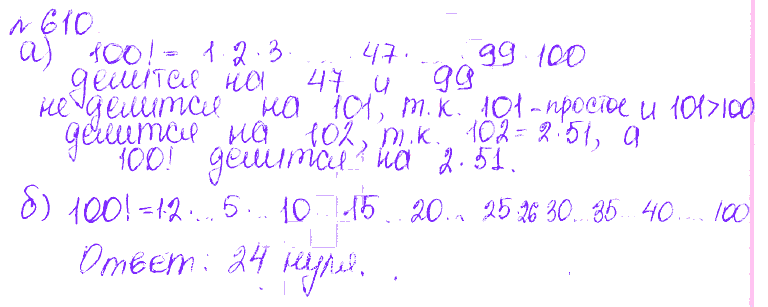 № 610
а) 100! = 1·2·3·...·47·...·99·100
делится на 47 и 99
не делится на 101, т.к. 101 - простое и 101>100
делится на 102, т.к. 102 = 2·51, а
100! делится на 2·51.
б) 100! = 1·2·...5·...10...15...20...25 26 30...35...40...100
Ответ: 24 нуля.